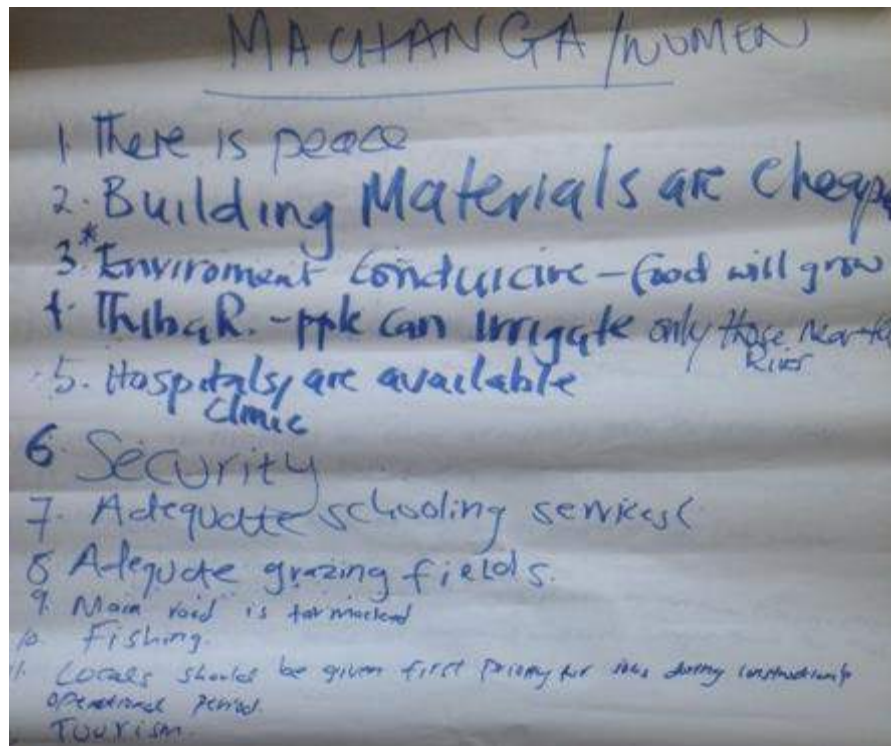 MACHANGA/WOMEN
1. There is peace
2. Building Materials are Cheap
3.* Enviroment Conduicive - food will grow
4. Thiba R. - ppk can irrigate only those near the
River
5. Hospitals, are available
Clinic
6. Security
7. Adequate schooling services
8 Adequate grazing fields.
9. Main road is tarmacked
10. Fishing.
11. Locals should be given first priority for jobs during construction &
operational period.
Tourism.